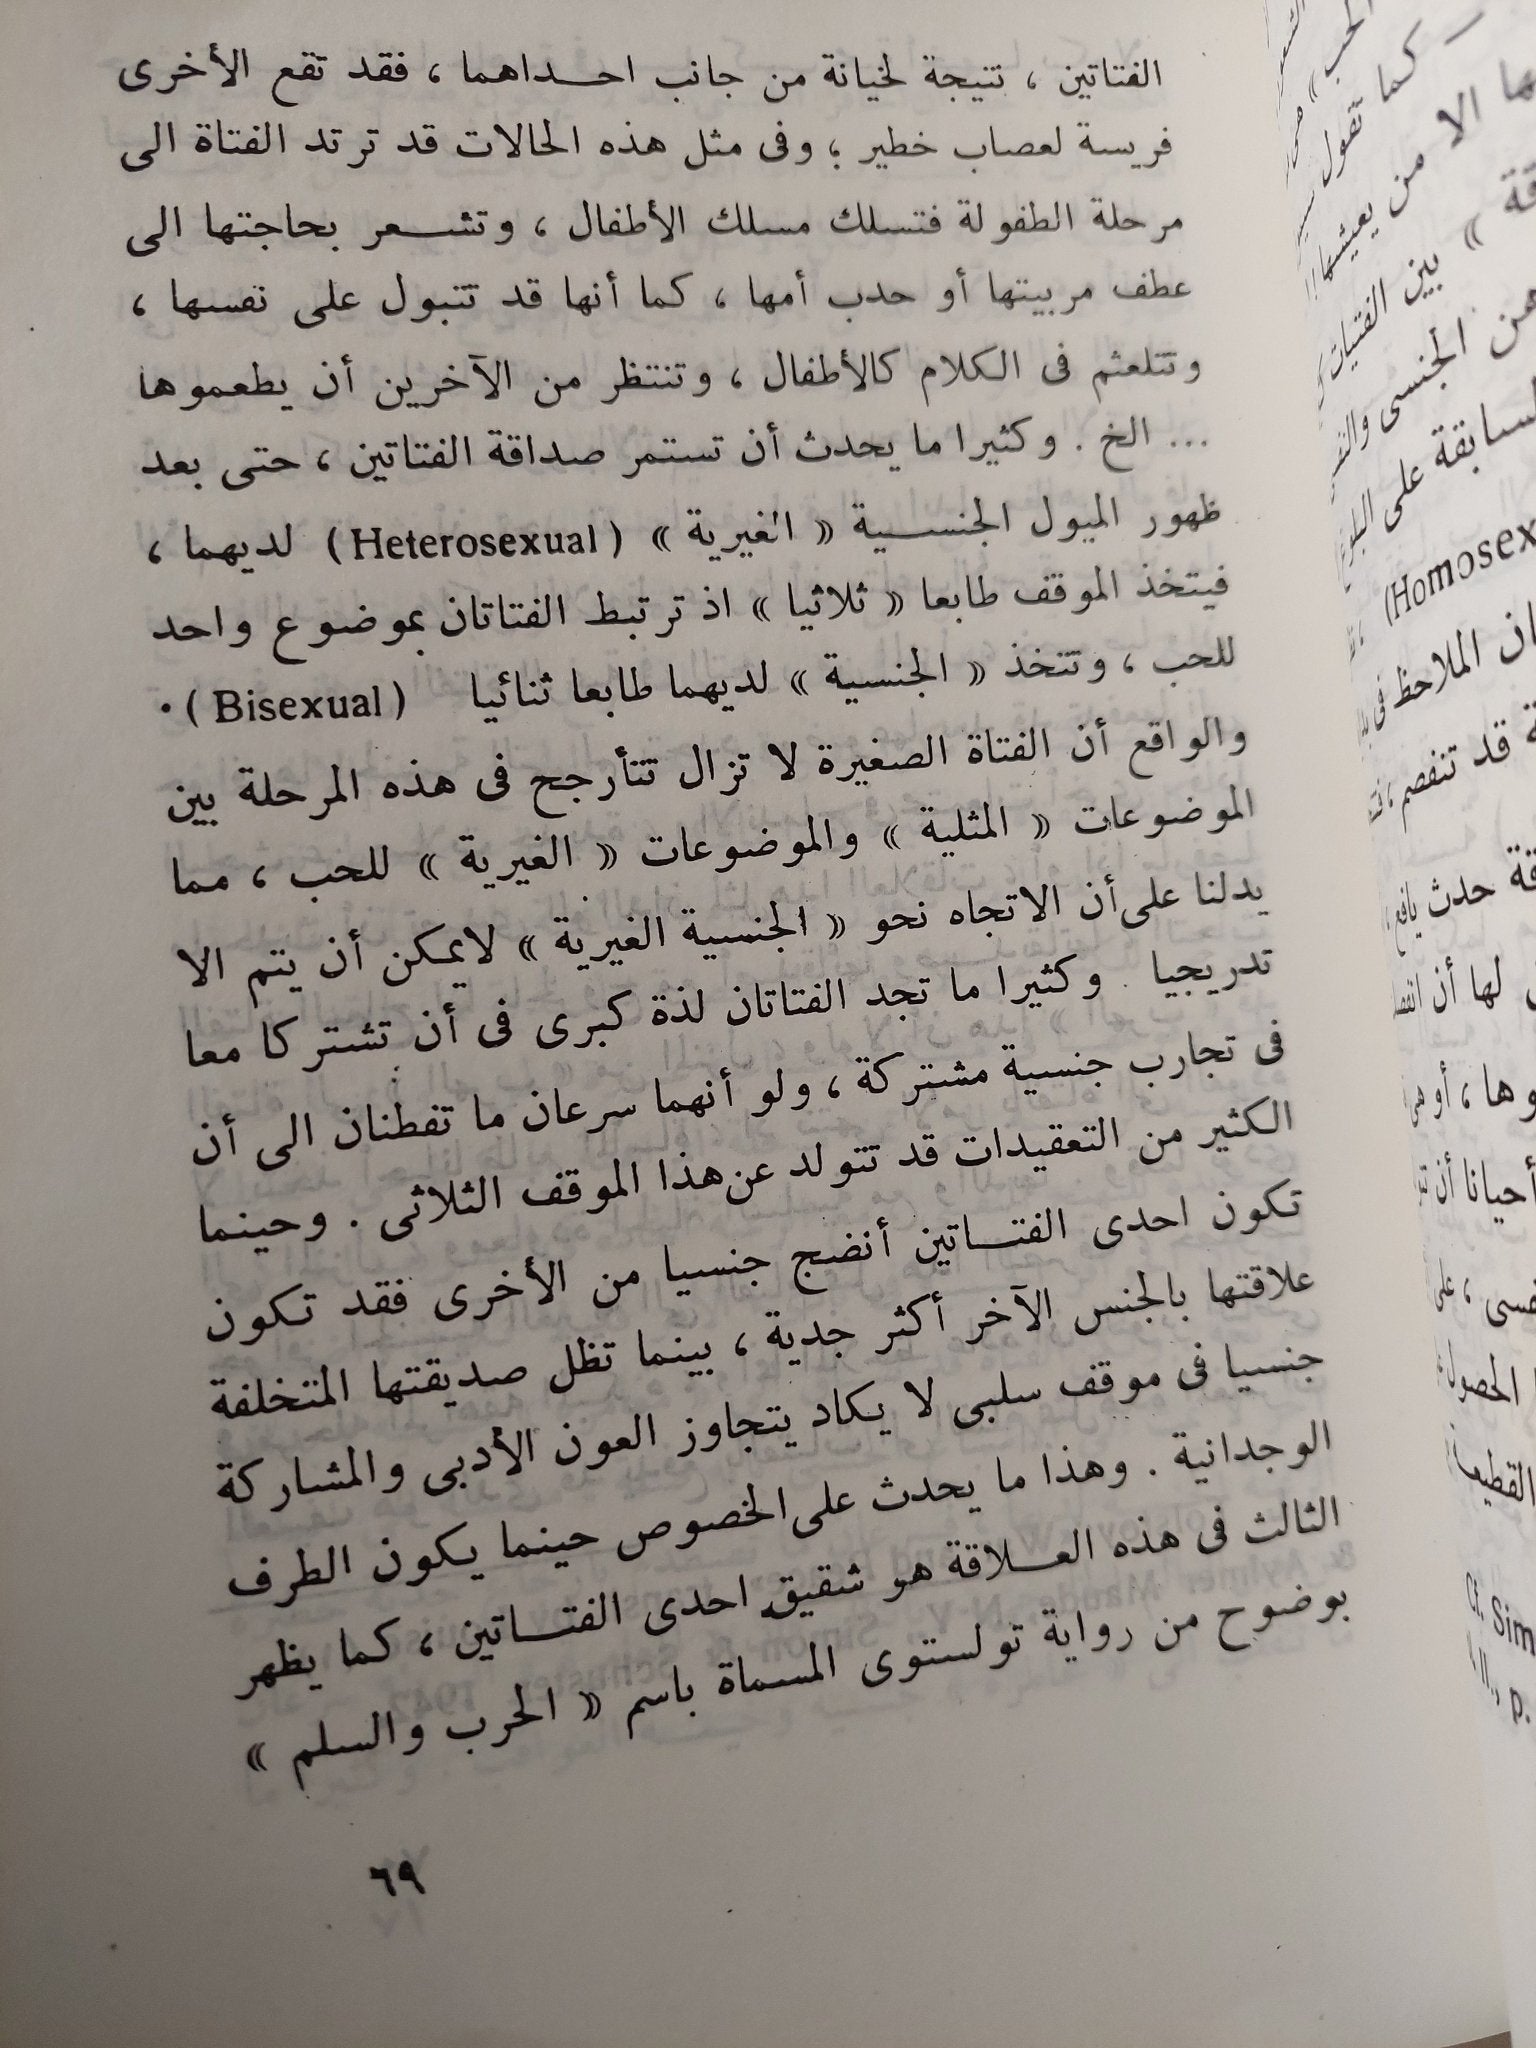 الفتاتين ، نتيجة لخيانة من جانب احداهما ، فقد تقع الأخرى
فريسة لعصاب خطير ؛ وفى مثل هذه الحالات قد ترتد الفتاة الى
مرحلة الطفولة فتسلك مسلك الأطفال ، وتشعر بحاجتها الى
عطف مربيتها أو حدب أمها ، كما أنها قد تتبول على نفسها ،
وتتلعثم فى الكلام كالأطفال ، وتنتظر من الآخرين أن يطعموها
... الخ . وكثيرا ما يحدث أن تستمر صداقة الفتاتين ، حتى بعد
ظهور الميول الجنسية « الغيرية » (Heterosexual) لديهما ،
فيتخذ الموقف طابعا « ثلاثيا » اذ ترتبط الفتاتان بموضوع واحد
للحب ، وتتخذ « الجنسية » لديهما طابعا ثنائيا (Bisexual) .
والواقع أن الفتاة الصغيرة لا تزال تتأرجح فى هذه المرحلة بين
الموضوعات « المثلية » والموضوعات « الغيرية » للحب ، مما
يدلنا على أن الاتجاه نحو « الجنسية الغيرية » لايمكن أن يتم الا
تدريجيا . وكثيرا ما تجد الفتاتان لذة كبرى فى أن تشتركا معا
فى تجارب جنسية مشتركة ، ولو أنهما سرعان ما تفطنان الى أن
الكثير من التعقيدات قد تتولد عن هذا الموقف الثلاثى . وحينما
تكون احدى الفتاتين أنضج جنسيا من الأخرى فقد تكون
علاقتها بالجنس الآخر أكثر جدية ، بينما تظل صديقتها المتخلفة
جنسيا فى موقف سلبى لا يكاد يتجاوز العون الأدبى والمشاركة
الوجدانية . وهذا ما يحدث على الخصوص حينما يكون الطرف
الثالث فى هذه العلاقة هو شقيق احدى الفتاتين ، كما يظهر
بوضوح من رواية تولستوى المسماة باسم « الحرب والسلم »
٦٩
كما تقول
الا من يعيشها
» بين الفتيات
الجنسى
السابقة على البلوغ
الملاحظ فى
قد تنفصم ،
حدث يافع
لها أن
، أو هى
أحيانا أن
، على
الحصول
Cf. Sim
p.